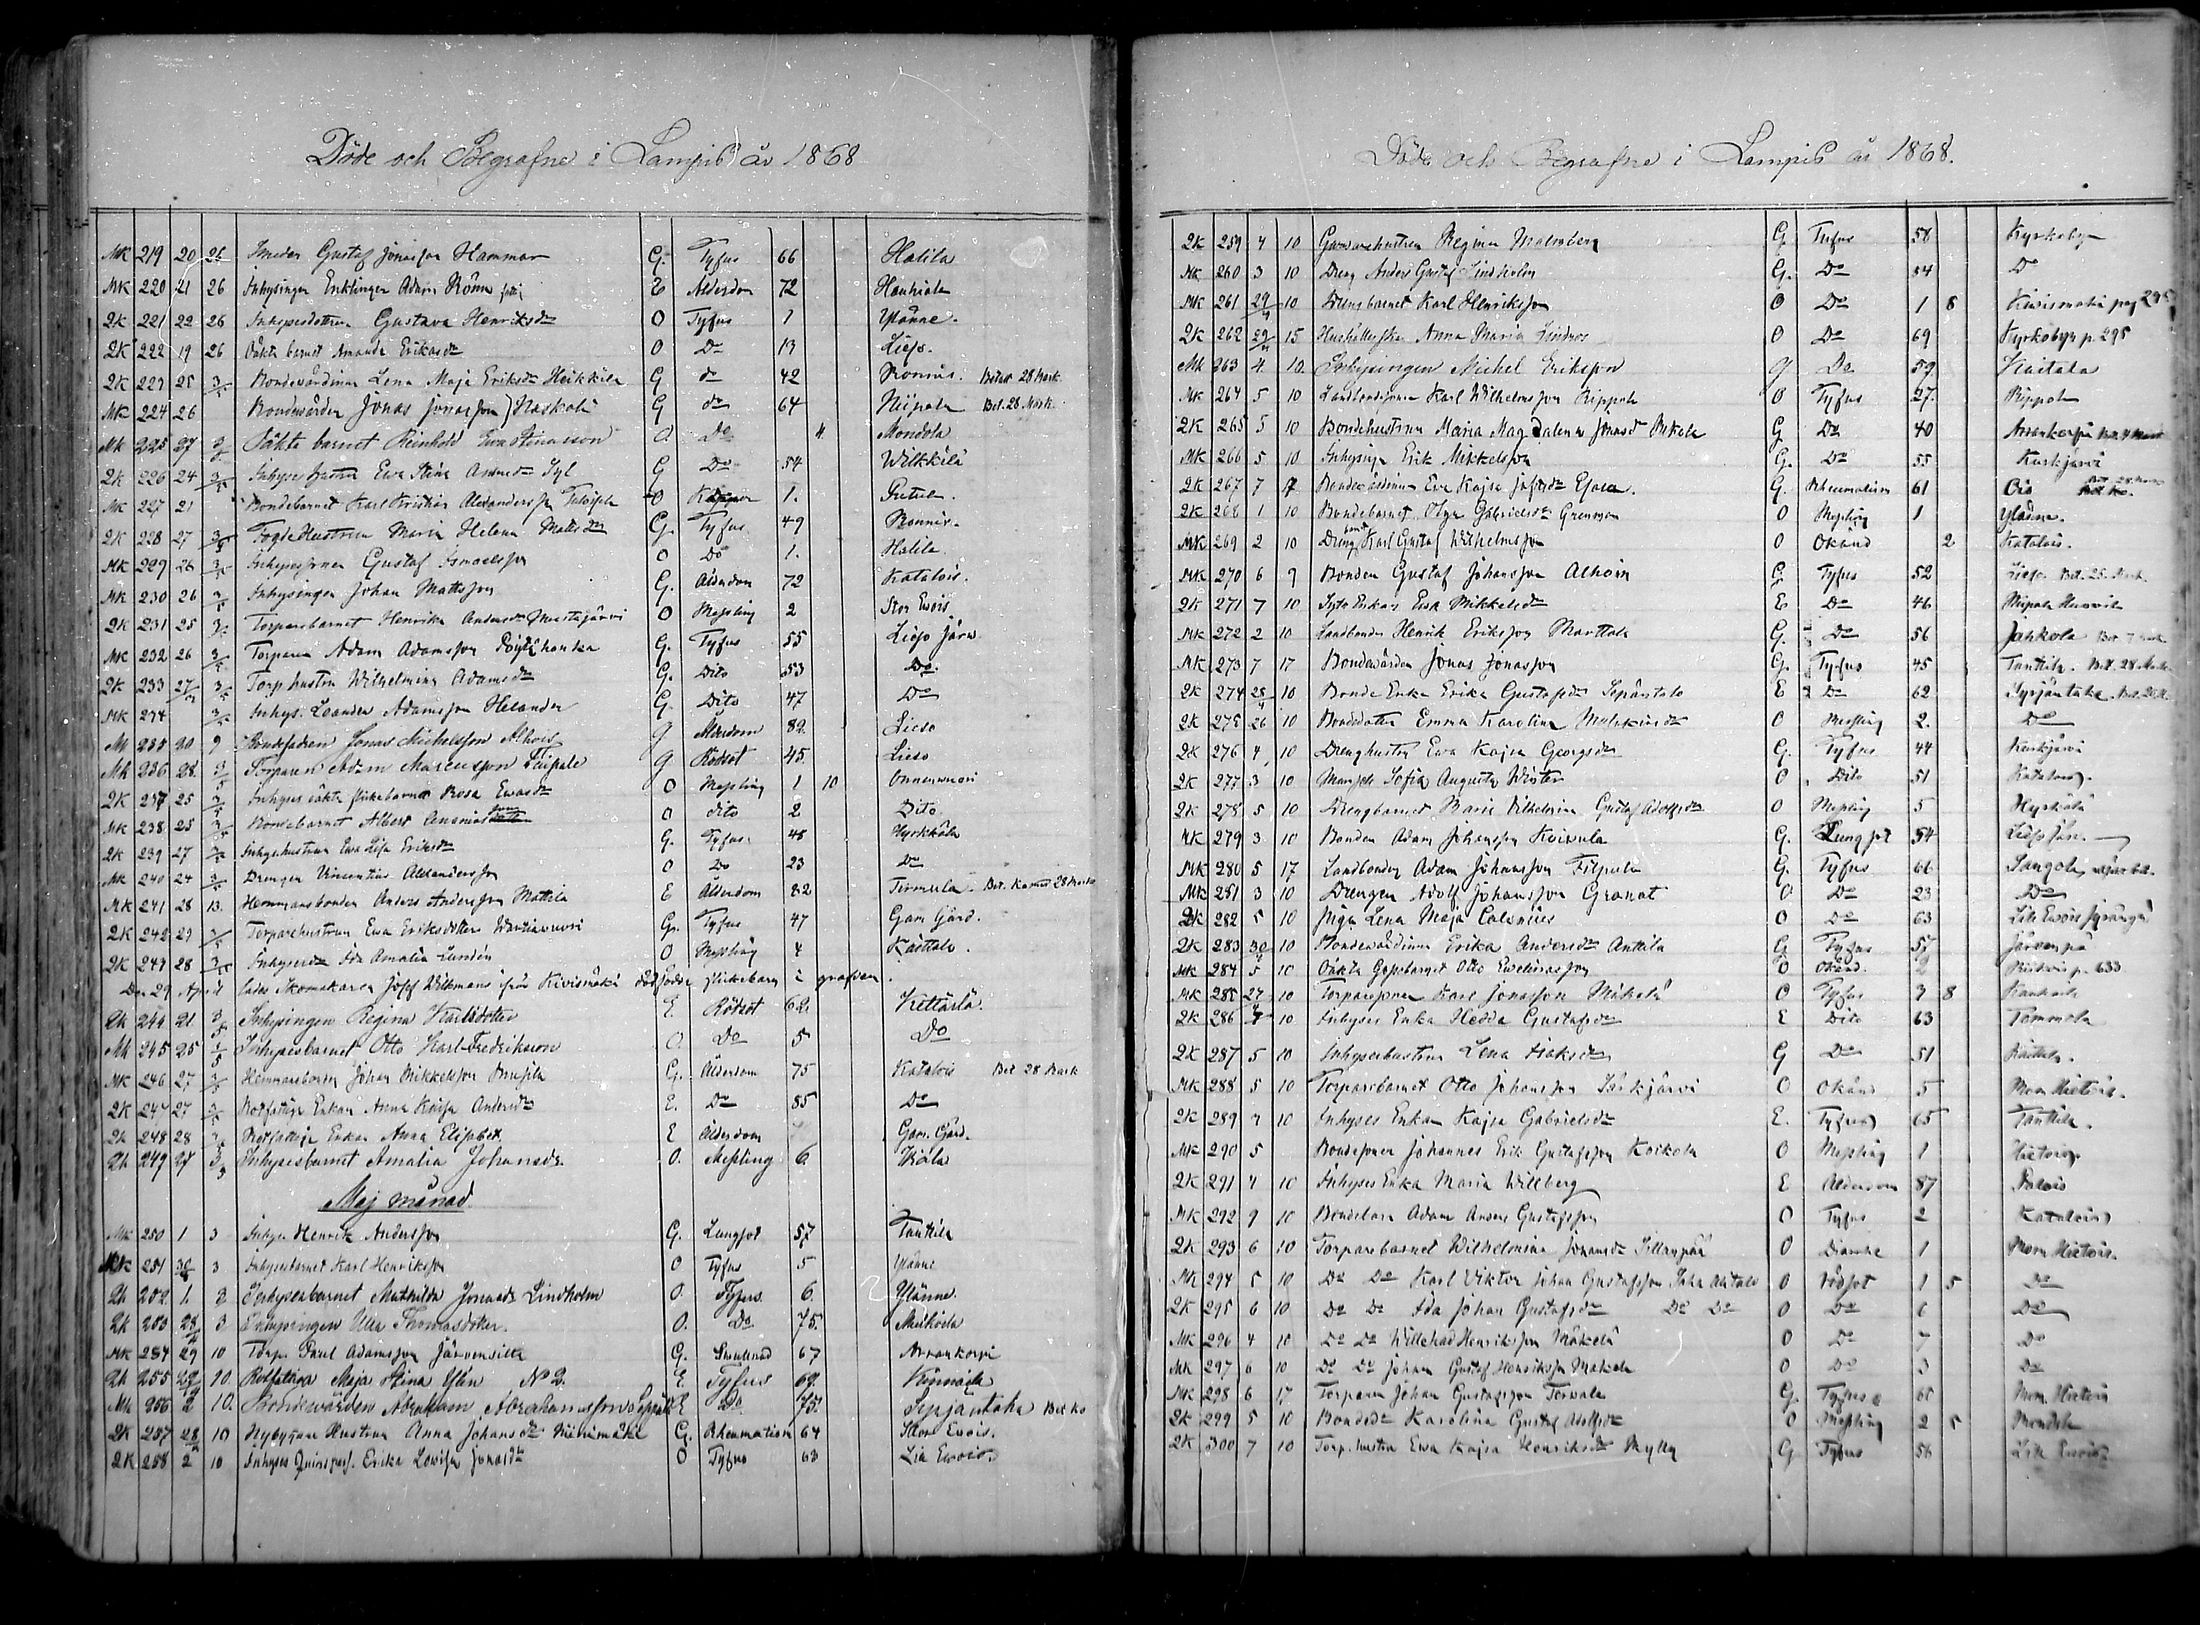 Döde och Begrafne i Lampis år 1868
MK 219 20 26 Smeden Gustaf Jonasson Hammar G. Tyfus 66 Halila
MK 220 21 26 Inhysingen Enklingen Adam E Ålderdom 72 Hauhiala
QK 221 22 26 Inhysesdottren Gustava Henriksdr O Tyfus 1 Ylänne.
QK 222 19 26 Oäkta barnet Amanda Eriksdr O Do 13 Lieso.
QK 223 25 3/5 Bondevärdinn Lena Maja Eriksdr Heikkilä G do 42 Ronnis. Betalt 28 Mark.
MK 224 26 Bondevärden Jonas Jonasson Haskola G do 64 Niipala Bet. 28 Mark.
MK 225 27 Oäkta barnet Reinhold Eva Stinasson O. Do 4. Mondola
QK 226 24 Inhyseshustru Eva Stina G Do 54 Wilkkilä
MK 227 21 Bondebarnet Karl Kristian Alexandersson O 1.
QK 228 27 3/5 Hustrun Maria Helena Mattsdr G. Tyfus 49 Ronnis.
MK 229 26 3/5 Inhysessonen Gustaf O Do 1. Halila
MK 230 26 3/5 Inhysingen Johan Mattsson G. Ålderdom 72 Katalois.
QK 231 25 3/5 Torparebarnet Henrika Andersdr Mustajärvi O Messling 2 Stor Evois
MK 232 26 3/5 Torparen Adam Adamsson G. Tyfus 55 Lieso järw.
QK 233 27/4 3/5 Torp.hustru Wilhelmina Adamsdr G. Dito 53 Do.
MK 234 3/5 Inhys. Leander Adamsson Helander G. Dito 47 Do
Mk 235 30 9 Bondefadren Jonas Michelsson Alhois g Ålderdom 82 Lieso
Mk 236 28. 3/5 Torparen Adam Marcusson g Rödsot 45. Lieso
QK 237 25 3/5 Inhyses oäkta flickebarnet Rosa Evasdr O Messling 1 10
MK 238 25 3/5 Bondebarnet Albert O dito 2 Dito
QK 239 27 3/5 Inhyshustrun Eva Lisa Eriksdr G. Tyfus 48 Hyrkkälä
MK 240 24 3/5 Drengen Vincentius Alexandersson O Do 23 Do
MK 241 28 13. Hemmansbonden Anders Andersson Mattila E Ålderdom 82 Tirmula. Bet. 28 Mark
QK 242 29 3/5 Torparehustrun Eva Eriksdotter G. Tyfus 47 Gam Gård.
QK 243 28 3/5 Inhysesdr Ida Amalia Lundén O Messling 4 Kaittala.
Den 29 April lades Skomakaren Josef Wilkmans ifrån Kivismäki dödfödda flickebarn i grafven.
Qk 244 21 3/5 Inhysingen Regina Karlsdotter E. Rötsot 62 Kettärlä
Mk 245 25 3/5 Inhysesbarnet Otto Karl-Fredriksson O. Do 5 Do
MK 246 27 3/5 Hemmansbonden Johan Mikkelsson G. Ålderdom 75 Katalois Bet 28 Mark
QK 247 27 3/5 Rotfattige Enkan Anna Kaisa Andersdr E. Do 85 Do
Qk 248 28 Rotfattige Enkan Anna Elisabet E Ålderdom Gam. Gård.
Qk 249 27 3/5 Inhysesbarnet Amalia Johansdr. O. Messling 6.
Maj månad.
MK 250 1 3 Inhys. Henrik Andersson G. Lungsot 57 Tanttila
MK 251 30 3 Inhysesbarnet Karl Henriksson O Tyfus 5 Ylänne
Qk 252 1. 3 Inhysesbarnet Mathilda Jonasdr Lindholm O. Tyfus 6 Ylänne.
QK 253 28/4 3 Inhysingen Ulla Thomasdotter. O. Do. 75. Meihoila
MK 254 29 10 Torp. Paul Adamsson Järvensilta G. 67 Arrankorpi
Qk 255 29/4 10. Rotfattiga Maja Stina Ylén No 2. E. Tyfus 69. Kinnala
Mk 256 2 10. Bondevärden Abraham Abrahamsson Seppälä E do 75. Syrjäntaka Bet ko
QK 257 28/4 10 Nybyggare Hustrun Anna Johansdr Niinimäki G. Rheumatism 64 Stor Evois.
QK 258 2 10 Inhyses Qvinspers. Erika Lovisa Jonasdr O Tyfus 63 Lia Evois.
Döde och Begrafne i Lampis år 1868.
QK 259 4 10 Regina Malmberg G. Tyfus 56 Kyrkoby
MK 260 3 10 Dreng Anders Gustaf Lindholm G. Do 54 Do
MK 261 29/4 10 Drengbarnet Karl Henriksson O Do 1 8 Kivismäki pag 296
QK 262 29/4 15 Hushållerskan Anna Maria Lindroos O Do 69 Kyrkobyn p. 295
Mk 263 4. 10. Inhysingen Michel Eriksson g Do 59 Kaitala
MK 264 5 10 Landbondsonen Karl Wilhelmsson Rippola O Tyfus 27. Rippola
QK 265 5 10 Bondehustrun Maria Magdalena Jonasdr Mikola G Do 40 Arrankorpi
MK 266 5 10 Inhysing Erik Mikkelsson G. Do 55 Kurkjärvi
QK 267 7 17 Bondevärdinn Eva Kajsa Josefsdr G. Rheumatism 61 Bet. 28 Mark
QK 268 1 10 Bondebarnet Olga Gabrielsdr Grenman O Messling 1 Ylänne.
MK 269 2 10 Dreng Karl Gustaf Wilhelmsson O Okänd 2 Katalois.
MK 270 6 9 Bonden Gustaf Johansson Alhois G Tyfus 52 Lieso Bet. 28 Mark
QK 271 7 10 Enkan Eva Mikkelsdr E Do 46
MK 272 2 10 Landbonden Henrik Eriksson Marttala G. Do 56 Jahkola
MK 273 7 17 Bondevärden Jonas Jonasson G. Tyfus 45 Tanttila. Bet. 28 Mark
QK 274 28/4 10 Bonde Enka Erika Gustafsdr E Do 62 Syrjäntaka
QK 275 26 10 Bondedotter Emma Karolina O Messling 2. Do
QK 276 4 10 Drenghustru Eva Kajsa Georgsdr G. Tyfus 44 Kurkjärvi
QK 277 3 10 Mamsell Sofia Augusta Winter O Dito 51 Katalois.
QK 278 5 10 Drengbarnet Maria Vilhelmina Gustaf Adolfsdr O Messling 5 Hyrkälä
MK 279 3 10 Bonden Adam Johansson Koivula G. Lungsot 54 Lieso
MK 280 5 17 Landbonden Adam Johansson Filpula G. Tyfus 66
MK 281 3 10 Drengen Adolf Johansson Granat O Do 23 Do
QK 282 5 10 Pigan Lena Maja Calenius O Do 63
QK 283 30/4 10 Bondevärdinn Erika Andersdr Anttila G Tyfus 57 Järvenpä
MK 284 5 10 Oäkta Gossbarnet Otto Evelinasson O Okänd. 2
MK 285 27/4 10 Torparesonen Karl Jonasson Mäkelä O Tyfus 3 8
QK 286 7 10 Inhyses Enka Hedda Gustafsdr E Dito 63 Tommola
QK 287 5 10 Inhyseshustrun Lena Isaksdr G Do 51 Kaittala.
MK 288 5 10 Torparebarnet Otto Johansson Särkjärvi O Okänd 5
QK 289 7 10 Inhyses Enkan Kajsa Gabrielsdr E. Tyfus 65 Tanttila.
MK 290 5 Bondesonen Johannes Erik Gustafsson Koikola O Messling 1
QK 291 4 10 Inhyses Enka Maria Willberg E Ålderdom 87
MK 292 9 10 Bondebarn Adam Anders Gustafsson O Tyfus 2 Katalois
QK 293 6 10 Torparebarnet Wilhelmina Johansdr O Diarrhe 1
Mk 294 5 10 Do Do Karl Viktor Johan Gustafsson O rödsot 1 5 Do
QK 295 6 10 Do Do Ida Johan Gustafsdr Do Do O Do 6 Do
MK 296 4 10 Do Do Willehad Henriksson Mäkelä O Do 7 Do
MK 297 6 10 Do Do Johan Gustaf Henriksson Mäkelä O Do 3 Do
MK 298 6 17 Torparen Johan Gustafsson Torvala G. Tyfus
QK 299 5 10 Bondedr Karolina Gustaf Adolfsdr O Messling 2 5 Mondola
QK 300 7 10 Torp.hustru Eva Kajsa Henriksdr Mylly G Tyfus 56